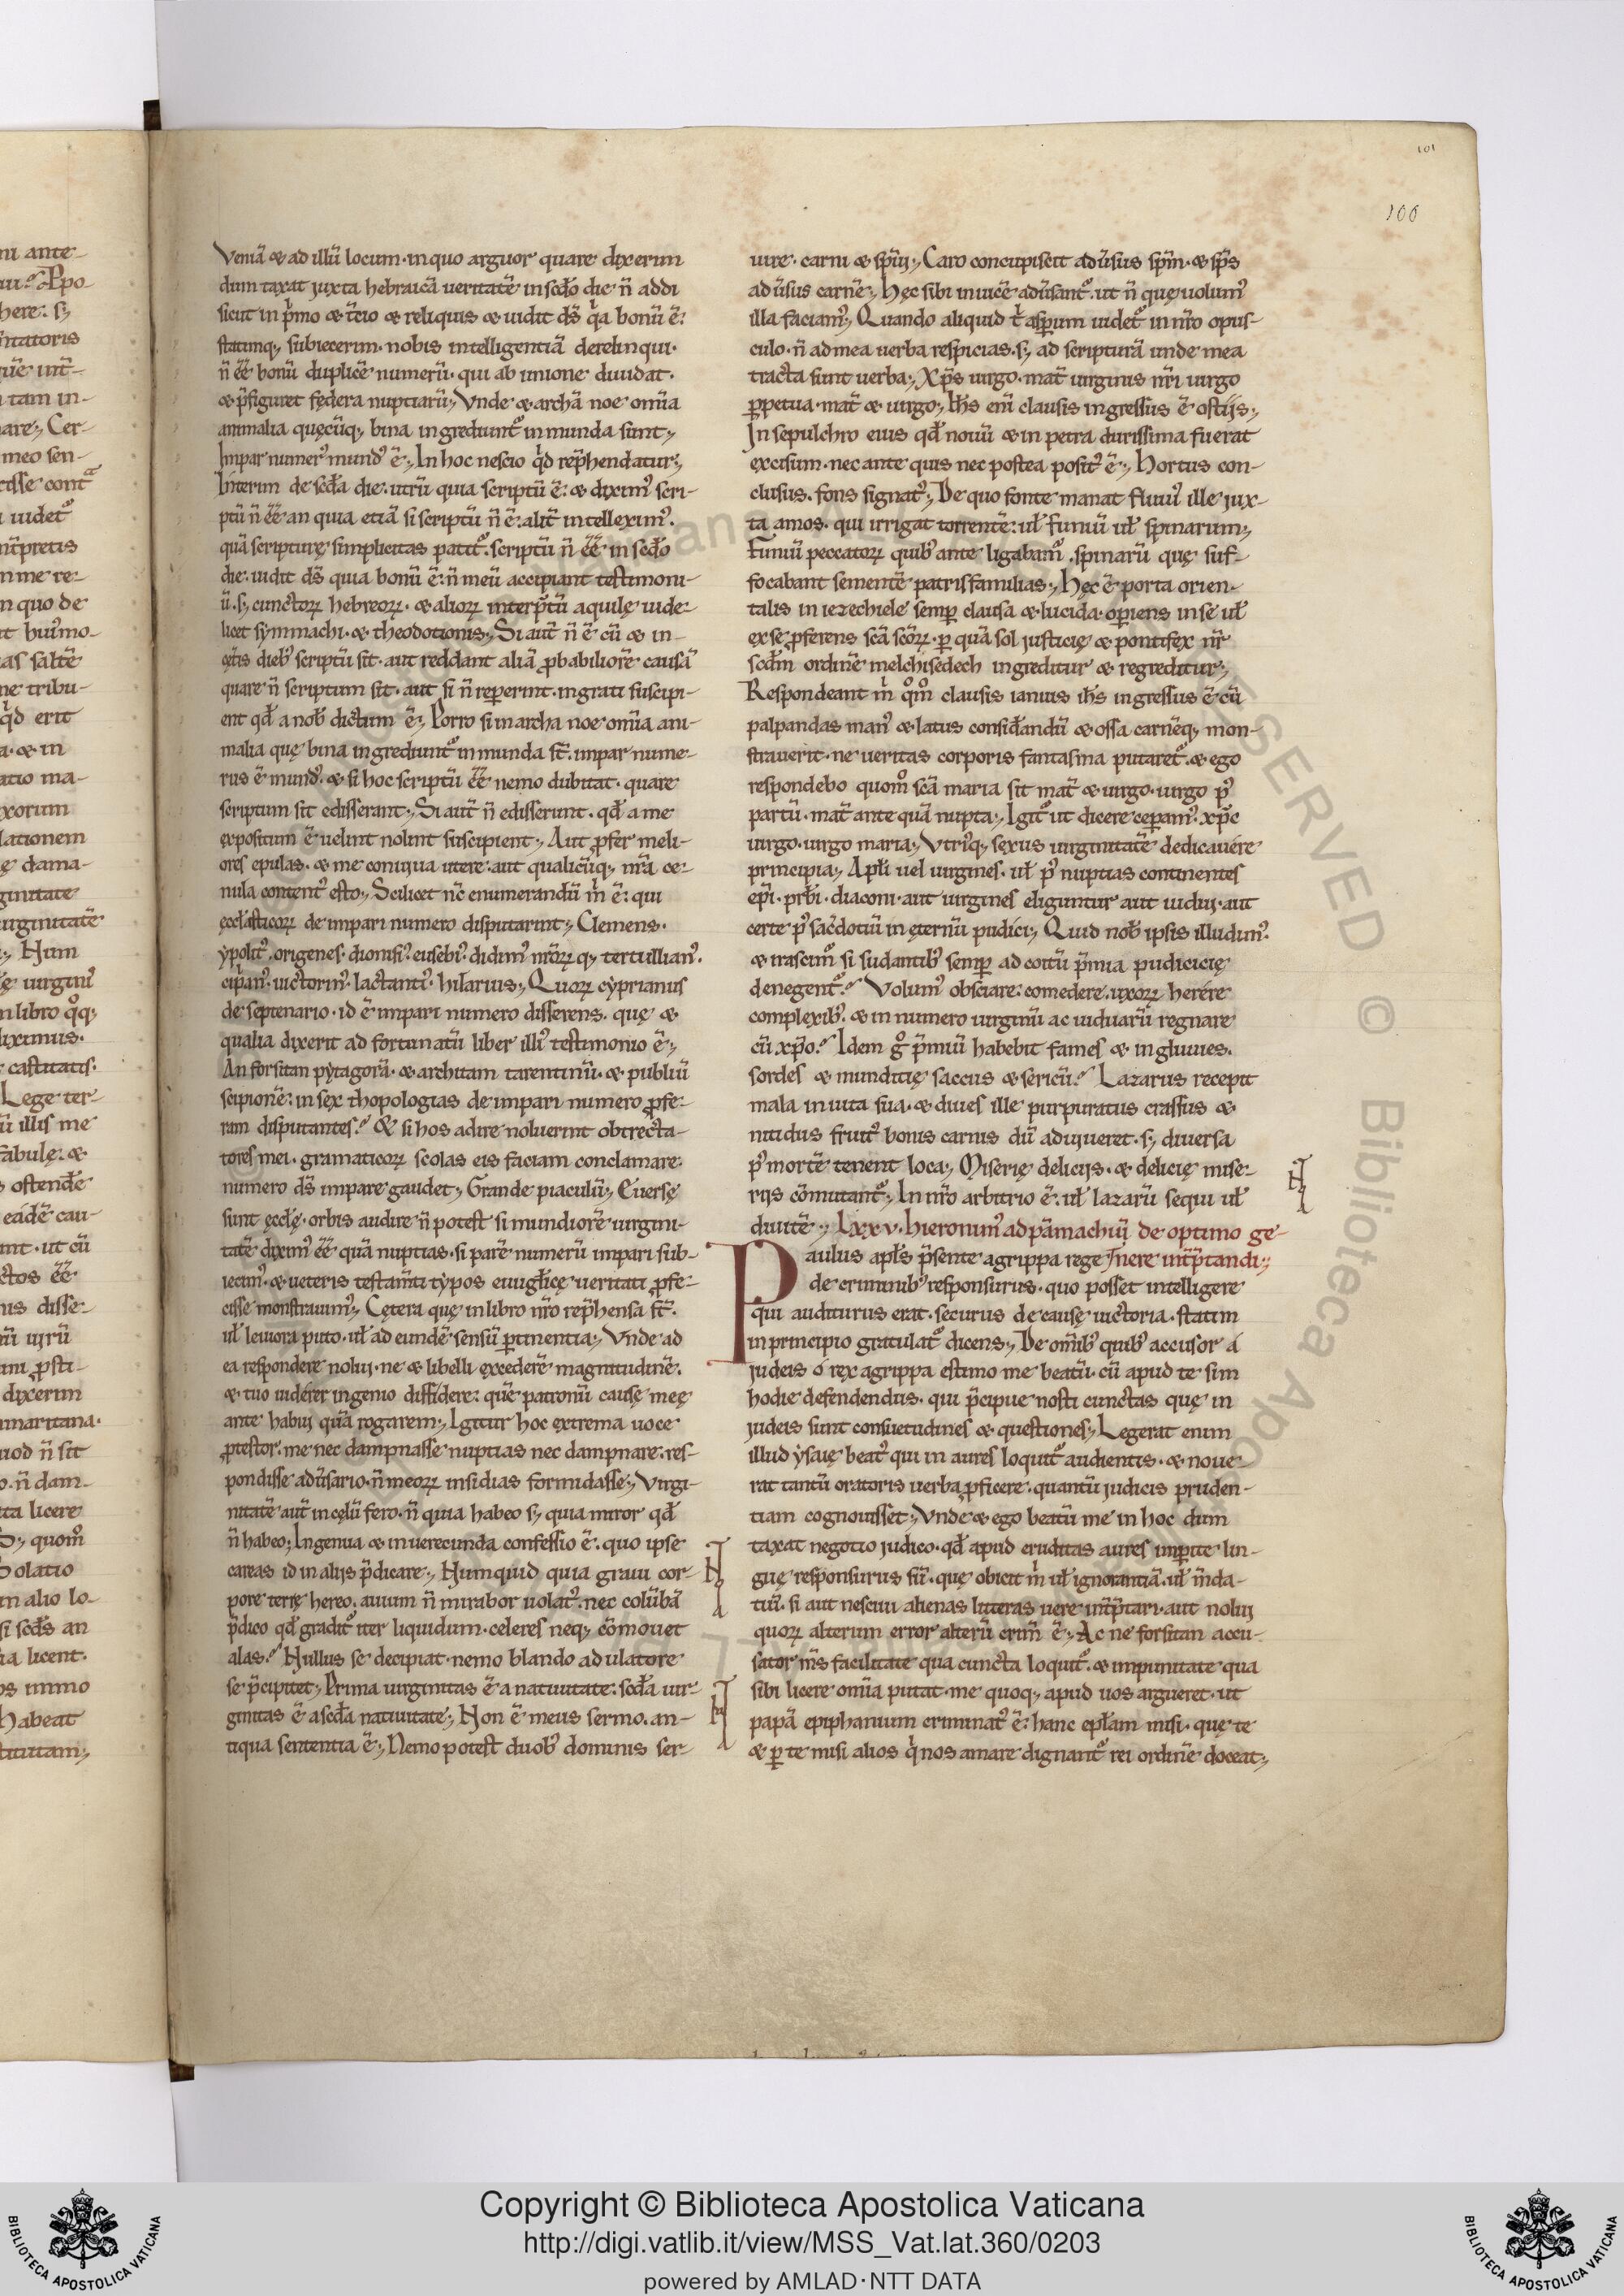 101
100
Veniã & ad illũ locum · in quo arguor quare dixerim
dum taxat juxta hebraicã veritatẽ in scd̃o die ñ addi
sicut in p̃mo & t̃cio & reliquis & uidit d̃s q̃a bonũ ẽ:
statimq; subiecerim · nobis intelligentiã derelinqui ·
ñ ẽẽ bonũ duplicẽ numerũ · qui ab unione diuidat ·
& p̃figuret fędera nuptiarũ; Vnde & archã noe om̃ia
animalia quęcũq; bina ingrediunt᷑ inmunda sunt;
Impar numer᷒ mund᷒ ẽ; In hoc nescio q̃d rep̃hendatur;
Interim de scd̃a die · utrũ quia scriptũ ẽ: & dixim᷒ scri-
ptũ ñ ẽẽ an quia etiã si scriptũ ñ ẽ: alit̃ intellexim᷒ ·
quã scripturę simplicitas patit᷑ · scriptũ ñ ẽẽ in scd̃o
die · uidit d̃s quia bonũ ẽ: ñ meũ accipiant testimoni-
ũ · s; cunctoꝝ hebreoꝝ · & alioꝝ interp̃tũ aquilę uide-
licet symmachi · & theodotionis; Si aut̃ ñ ẽ cũ & in
cęt̃is dieb᷒ scriptũ sit · aut reddant aliã ꝓbabiliorẽ causã
quare ñ scriptum sit · aut si ñ reperint · ingrati suscipi-
ent qd̃ a nob̃ dictum ẽ; Porro si in archa noe om̃ia ani-
malia quę bina ingrediunt᷑ inmunda s̃t · impar nume-
rus ẽ mund᷒ · & si hoc scriptũ ẽẽ nemo dubitat · quare
scriptum sit edisserant; Si aut̃ ñ edisserunt · qd̃ a me
expositum ẽ uelint nolint suscipient; Aut ꝓfer meli-
ores epulas · & me coniua utere · aut qualicũq; nr̃a ce-
nula content᷒ esto; Scilicet nc̃ enumerandũ m̃ ẽ: qui
ęccl̃esticoꝝ de impari numero disputarint; Clemens ·
ypolit᷒ · origenes · dionisi᷒ · eusebi᷒ · didim᷒ nr̃oꝝq; tertullian᷒ ·
cip̃an᷒ · uictorin᷒ · lactanti᷒ · hilarius; Quoꝝ cyprianus
de septenario · id ẽ impari numero disserens · quę &
qualia dixerit ad fortunatũ liber illi᷒ testimonio ẽ;
An forsitan pytagorã · & architam tarentinũ · & publiũ
scipionẽ: in sex thopologias de impari numero ꝓfe-
ram disputantes? & si hos adire noluerint obtrecta-
tores mei · gramaticoꝝ scolas eis faciam conclamare ·
numero d̃s impare gaudet; Grande piaculũ; Euersę
sunt ęccl̃ę · orbis audire ñ potest si mundiorẽ uirgini-
tatẽ dixim᷒ ẽẽ quã nuptias · si parẽ numerũ impari sub-
iecim᷒ · & ueteris testam̃ti typos euugl̃icę ueritati ꝓfe-
cisse monstrauim᷒; Cętera quę in libro nr̃o rep̃hensa s̃t ·
ul̃ leuiora puto · ul̃ ad eundẽ sensũ ꝑtinentia; Vnde ad
ea respondere nolui · ne & libelli excederẽ magnitudinẽ ·
& tuo uidérer ingenio diffidere: quẽ patronũ causę meę
ante habui quã rogarem; Igitur hoc extrema uoce
ꝓtestor: me nec dampnasse nuptias nec dampnare: res-
pondisse adũsario · ñ meoꝝ insidias formidasse; Virgi-
nitatẽ aut̃ in cęlũ fero · ñ quia habeo s; quia miror qd̃
ñ habeo; Ingenua & inuerecunda confessio ẽ · quo ipse
careas id in alijs p̃dicare; Numquid quia graui cor-
pore terrę hereo · auium ñ mirabor uolat᷒ · nec colũbã
p̃dico qd̃ gradit᷑ iter liquidum · celeres neq; cõmouet
alas? Nullus se decipiat · nemo blando adulatore
se p̃cipitet; Prima uirginitas ẽ a natiuitate: scd̃a uir-
ginitas ẽ a scd̃a natiuitate; Non ẽ meus sermo · an-
tiqua sententia ẽ; Nemo potest duob᷒ dominis ser-
uire · carni & sp̃ui; Caro concupiscit adũsus sp̃m · & sp̃s
adũsus carnẽ; Hęc sibi inuicẽ adũsant᷑ · ut ñ quę uolum᷒
illa faciam᷒; Quando aliquid t̃ asꝑum uidet᷑ in nr̃o opus-
culo · ñ ad mea uerba respicias · s; ad scripturã unde mea
tracta sunt uerba; Xp̃s uirgo · mat̃ uirginis nr̃i uirgo
ꝑpetua · mat̃ & uirgo; Ih̃s eni᷒ clausis ingressus ẽ ostijs;
In sepulchro eius qd̃ nouũ & in petra durissima fuerat
excisum · nec ante quis nec postea posit᷒ ẽ; Hortus con-
clusus · fons signat᷒; De quo fonte manat fluui᷒ ille jux-
ta amos · qui irrigat torrentẽ: ul̃ funiũ ul̃ spinarum;
Funiũ peccatoꝝ quib᷒ ante ligabam᷑ · spinarũ quę suf-
focabant sementẽ patrisfamilias; Hęc ẽ porta orien-
talis in iezechiele semꝑ clausa & lucida · operiens in se ul̃
ex se ꝓferens sc̃a sc̃oꝝ · ꝑ quã sol justicię & pontifex nr̃
scd̃m ordinẽ melchisedech ingreditur & regreditur;
Respondeant m̃ q̃m̃ clausis ianuis ih̃s ingressus ẽ cũ
palpandas man᷒ & latus considãndũ & ossa carnẽq; mon-
strauerit · ne ueritas corporis fantasma putaret᷑ · & ego
respondebo quom̃ sc̃a maria sit mat̃ & uirgo · uirgo p᷒
partũ · mat̃ ante quã nupta; Igit᷑ ut dicere cęperam᷒ · xp̃c
uirgo · uirgo maria; Vtri᷒q; sexus uirginitatẽ dedicauére
principia; Apl̃i uel uirgines · ul̃ p᷒ nuptias continentes
ep̃i · prb̃i · diaconi · aut uirgines eliguntur aut uidui · aut
certe p᷒ sac̃dotiũ in ęternũ pudici; Quid nob̃ ipsis illudim᷒ ·
& irascim᷑ si sudantib᷒ semꝑ ad coitũ p̃mia pudicicię
denegent᷑? Volum᷒ obsciare: comedere · uxoꝝ herére
complexib᷒ · & in numero uirginũ ac uiduarũ regnare
cũ xp̃o? Idem g̃ p̃miũ habebit fames & ingluuies ·
sordes & munditię saccus & sericũ? Lazarus recepit
mala in uita sua · & diues ille purpuratus crassus &
nitidus fruit᷒ bonis carnis dũ aduiueret · s; diuersa
p᷒ mortẽ tenent loca; Miserię delicijs · & delicię mise-
rijs cõmutant᷑; In nr̃o arbitrio ẽ: ul̃ lazarũ sequi ul̃
diuitẽ; Lxxv · hieronim᷒ ad pãmachiũ de optimo ge-
Paulus apl̃s p̃sente agrippa rege nere int̃p̃tandi;
de criminib᷒ responsurus · quo posset intelligere
qui auditurus erat · securus de causę uictoria · statim
in principio gratulat᷑ dicens; De om̃ib᷒ quib᷒ accusor á
judeis ó rex agrippa estimo me beatũ · cũ apud te sim
hodie defendendus · qui p̃cipue nosti cunctas quę in
judeis sunt consuetudines & questiones; Legerat enim
illud ysaię beat᷒ qui in aures loquit᷑ audientis · & noue-
rat tantũ oratoris uerba ꝓficere · quantũ judicis pruden-
tiam cognouisset; Vnde & ego beatũ me in hoc dum
taxat negotio judico · qd̃ apud eruditas aures imꝑite lin-
guę responsurus sũ · quę obicit m̃ ul̃ ignorantiã · ul̃ m̃da-
tiũ · si aut nesciui alienas litteras uere int̃p̃tari · aut nolui
quoꝝ alterum error alterũ crim̃ ẽ; Ac ne forsitan accu-
sator m̃s facilitate qua cuncta loquit᷑ · & impunitate qua
sibi licere om̃ia putat · me quoq; apud uos argueret · ut
papã epiphanium criminat᷒ ẽ: hanc epl̃am misi · quę te
& ꝑ te misi alios q̃ nos amare dignant᷑ rei ordinẽ doceat;
Copyright © Biblioteca Apostolica Vaticana
http://digi.vatlib.it/view/MSS_Vat.lat.360/0203
powered by AMLAD·NTT DATA
BIBLIOTECA APOSTOLICA VATICANA
BIBLIOTECA APOSTOLICA VATICANA